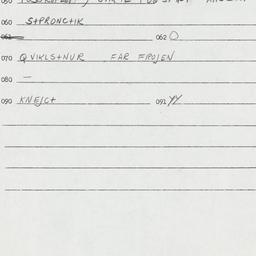 060 S+PRONC+IK
061 062 O
070 QVIKLS+NUR FAR FROJEN
080 —
090 KNEJC+ 091 YY